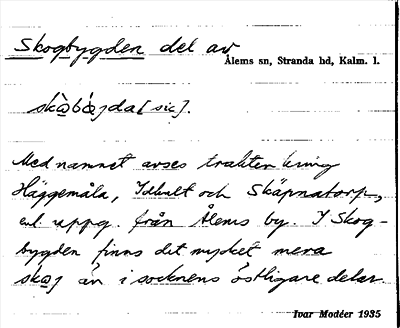 Skogbygden del av
Ålems sn, Stranda hd, Kalm. l.
skɑ̀bǿjda [sic].
Med namnet avses trakten kring
Häggemåla, Idhult och Skäpnatorp,
enl. uppg. från Ålems by. I Skog-
bygden finns det mycket mera
skoj än i socknens östligare delar.
Ivar Modéer 1935